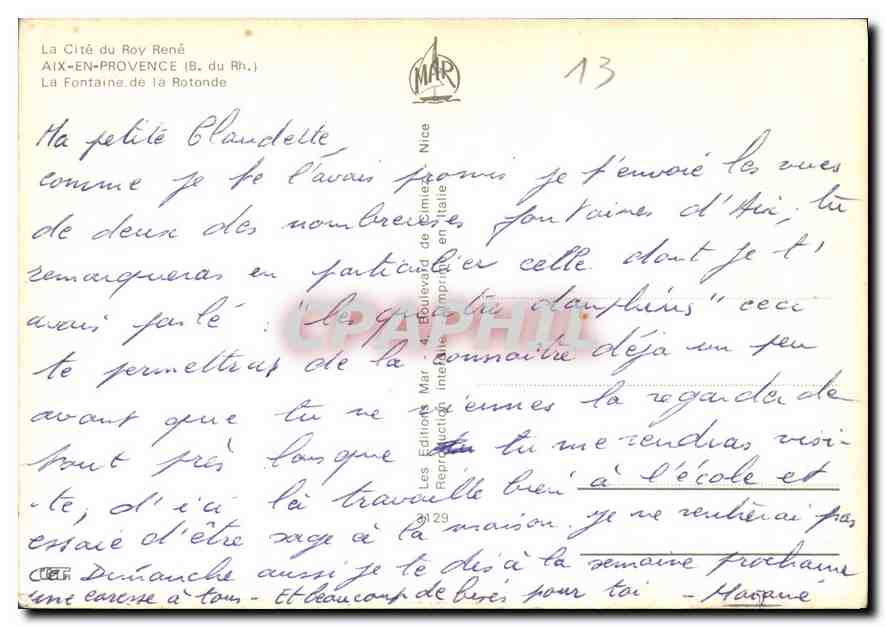 La Cité du Roy René
AIX-EN-PROVENCE (B. du Rh.)
La Fontaine de la Rotonde
MAR
13
Ma petite Claudette,
comme je te l'avais promis je t'envoie les vues
de deux des nombreuses fontaines d'Aix, tu
remarqueras en particulier celle dont je t'
avais parlé : "les quatre dauphins" ceci
te permettras de la connaitre déjà un peu
avant que tu ne viennes la regarder de
tout près lorsque tu me rendras visi-
te, d'ici là travaille bien à l'école et
essaie d'être sage à la maison. je ne rentrerai pas
ce Dimanche aussi je te dis à la semaine prochaine
une caresse à tous - Et beaucoup de bises pour toi -
Les Editions Mar - 4, Boulevard de Cimiez - Nice
Reproduction interdite - Imprimé en Italie
3129
CPAPHIL